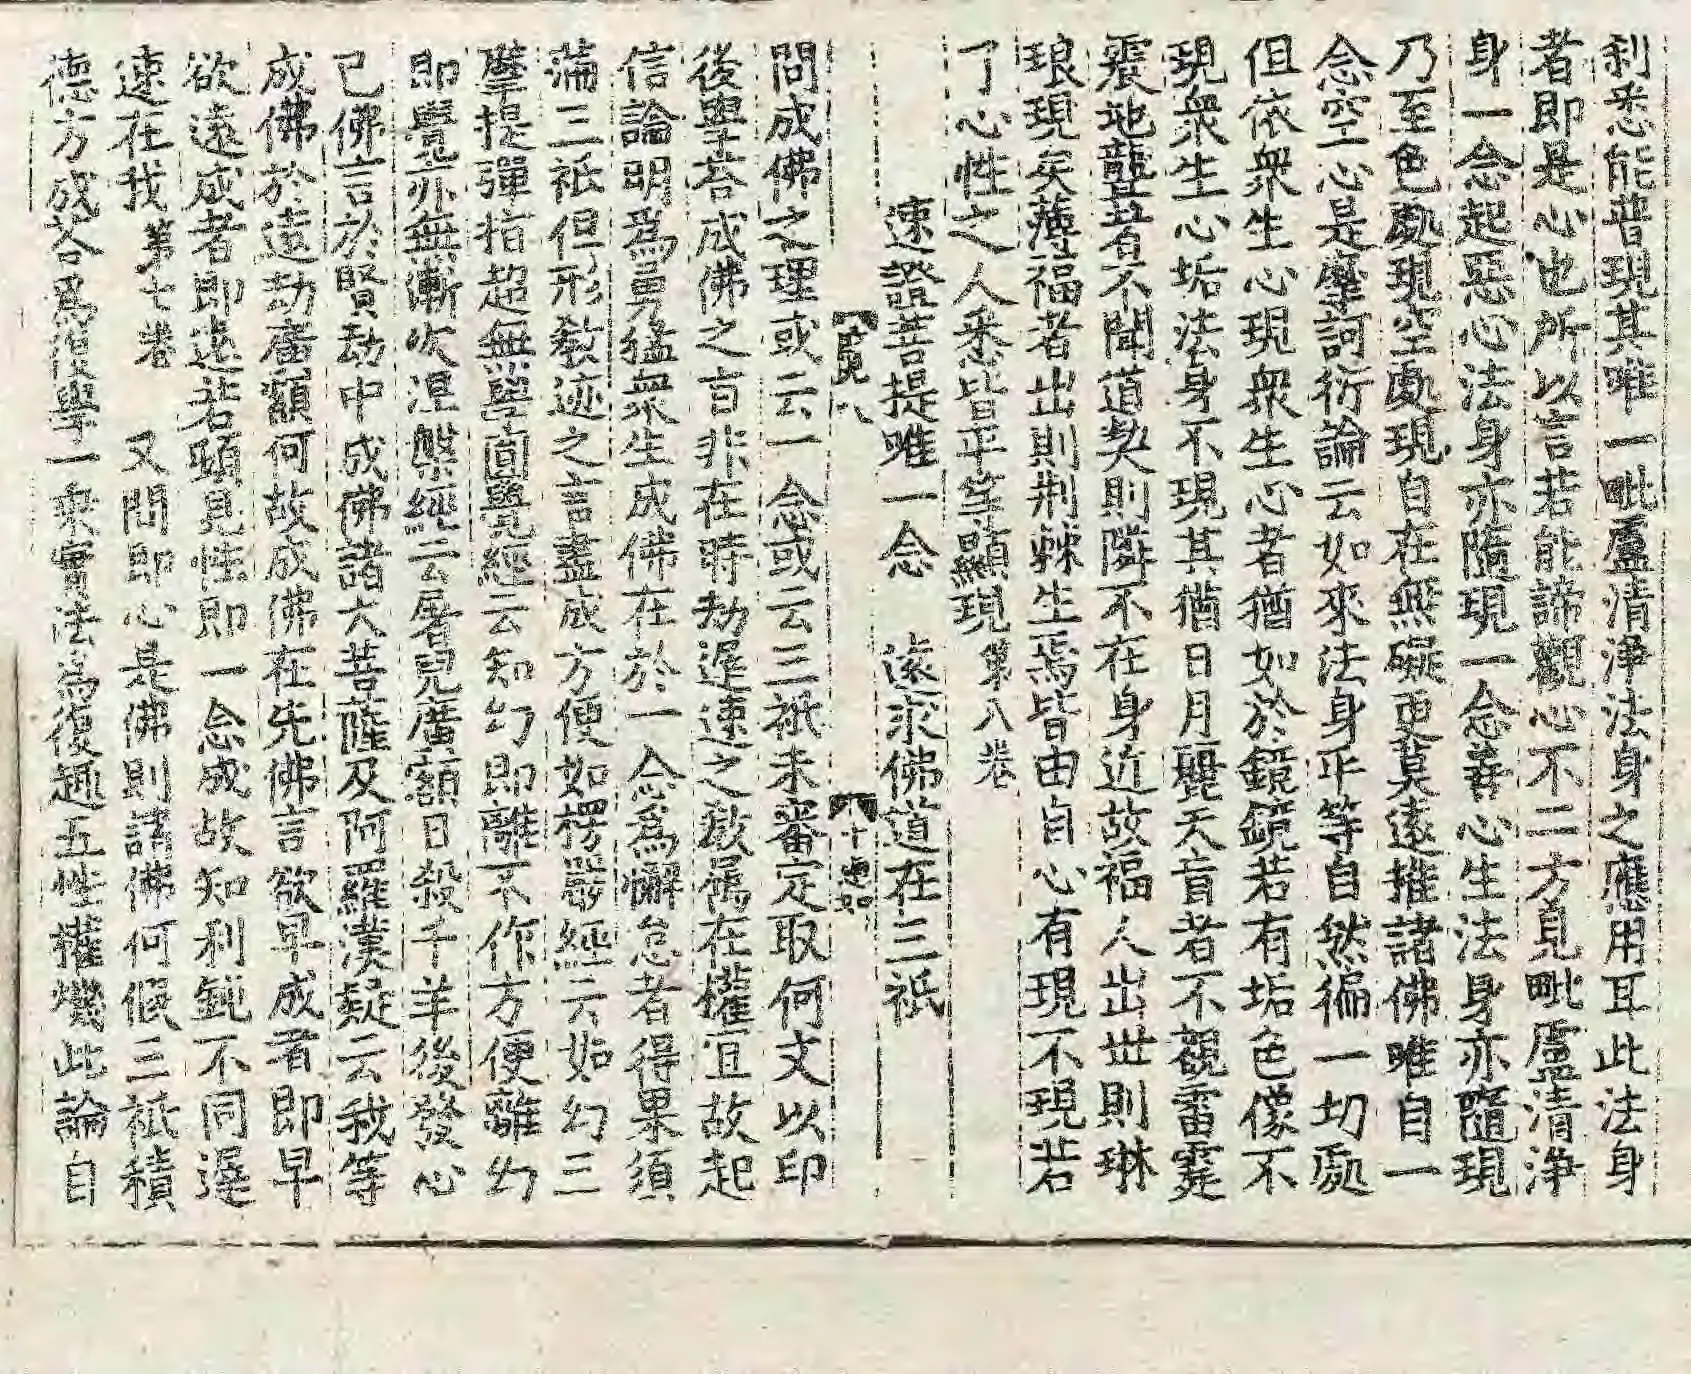 刹悉能普現其唯一毗盧清淨法身之應用耳此法身
者即是心也所以言若能諦觀心不二方見毗盧清淨
身一念起惡心法身亦隨現一念善心生法身亦隨現
乃至色處現空處現自在無礙更莫遠推諸佛唯自一
念空心是摩訶衍論云如來法身平等自然徧一切處
但依衆生心現衆生心者猶如於鏡鏡若有垢色像不
現衆生心垢法身不現其猶日月麗天盲者不覩雷霆
震地聾者不聞道契則隣不在身近故福人出世則琳
琅現矣薄福者出則荆棘生焉皆由自心有現不現若
了心性之人悉皆平等顯現第八卷
速證菩提唯一念　遠求佛道在三祇
覧八　十
問成佛之理或云一念或云三祇未審定取何文以印
後學荅成佛之旨非在時劫遲速之敎屬在權宜故起
信論明爲勇猛衆生成佛在於一念爲懈怠者得果須
滿三祇但形敎迹之言盡成方便如楞嚴經云如幻三
摩提彈指超無學圓覺經云知幻即離不作方便離幻
即覺亦無漸次涅槃經云屠兒廣額日殺千羊後發心
已佛言於賢劫中成佛諸大菩薩及阿羅漢疑云我等
成佛於遠劫廣額何故成佛在先佛言欲早成者即早
欲遠成者即遠若頤見性即一念成故知利鈍不同遲
速在我第七卷　又問即心是佛則諸佛何假三祇積
德方成荅爲復學一乘實法為復趣五性權機此論自